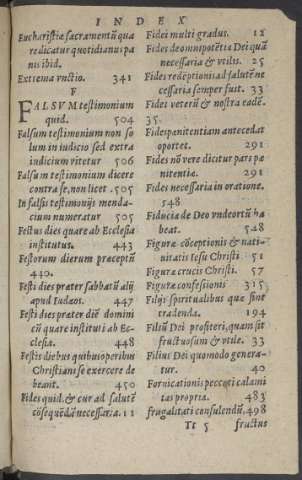 INDEX
Eucharistiæ sacramentū qua
re dicatur quotidianus pa
nis ibid.
Extrema vnctio. 341
F
FALSVM testimonium
quid. 504
Falsum testimonium non so
lum in iudicio sed extra
iudicium vitetur 506
Falsum testimonium dicere
contra se, non licet. 505
In falsis testimonijs menda-
cium numeratur 505
Festus dies quare ab Ecclesia
institutus. 443
Festorum dierum præceptū
440.
Festi dies præter sabbatū alij
apud Iudæos. 447
Festi dies præter diē domini
cū quare instituti ab Ec-
clesia. 448
Festis diebus quibus operibus
Christiani se exercere de
beant. 450
Fides quid. & cur ad salutē
cōsequēdā necessaria. 11
Fidei multi gradus. 12
Fides de omnipotētia Dei quā
necessaria & vtilis. 25
Fides redēptionis ad salutē ne
cessaria semper fuit. 33
Fides veterū & nostra eadē.
35.
Fides pœnitentiam antecedat
oportet. 291
Fides nō vere dicitur pars pœ
nitentiæ. 291
Fides necessaria in oratione.
548
Fiducia de Deo vnde ortū ha
beat. 528
Figuræ cōceptionis & nati-
uitatis Iesu Christi 51
Figuræ crucis Christi. 57
Figuræ confessionis 315
Filijs spiritualibus quæ sint
tradenda. 194
Filiū Dei profiteri, quam sit
fructuosum & vtile. 33
Filius Dei quomodo genera-
tur. 40
Fornicationis peccati calami
tas propria. 483
frugalitati consulendū. 498
Tt 5 fructus